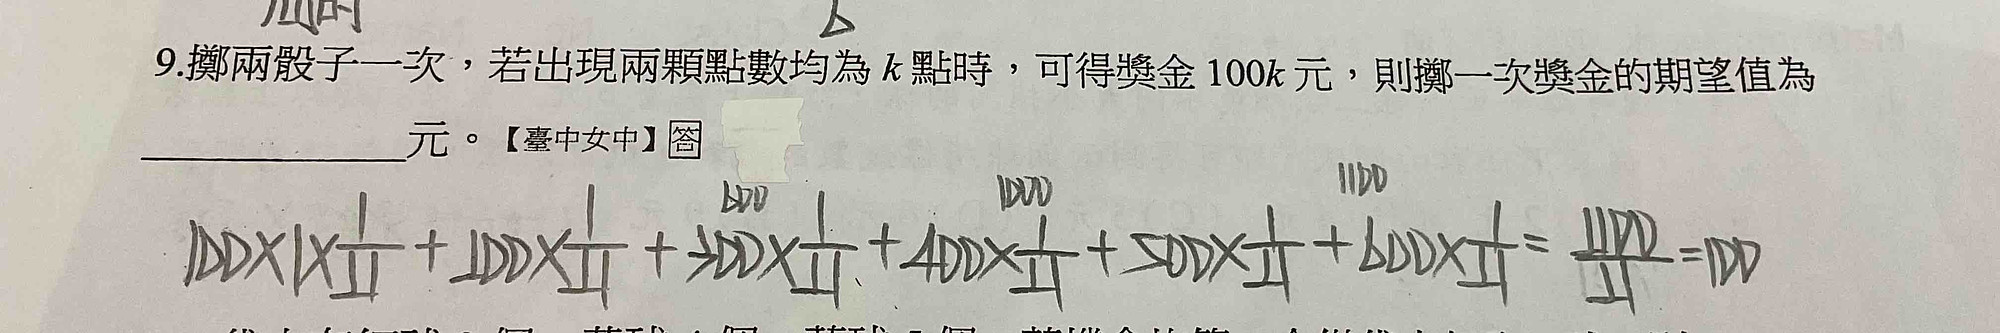 9.擲兩骰子一次，若出現兩顆點數均為 k 點時，可得獎金 100k 元，則擲一次獎金的期望值為
＿＿＿＿＿＿元。【臺中女中】答
600 1000 1100
100×1×1/11 + 200×1/11 + 300×1/11 + 400×1/11 + 500×1/11 + 600×1/11 = 1100/11 = 100